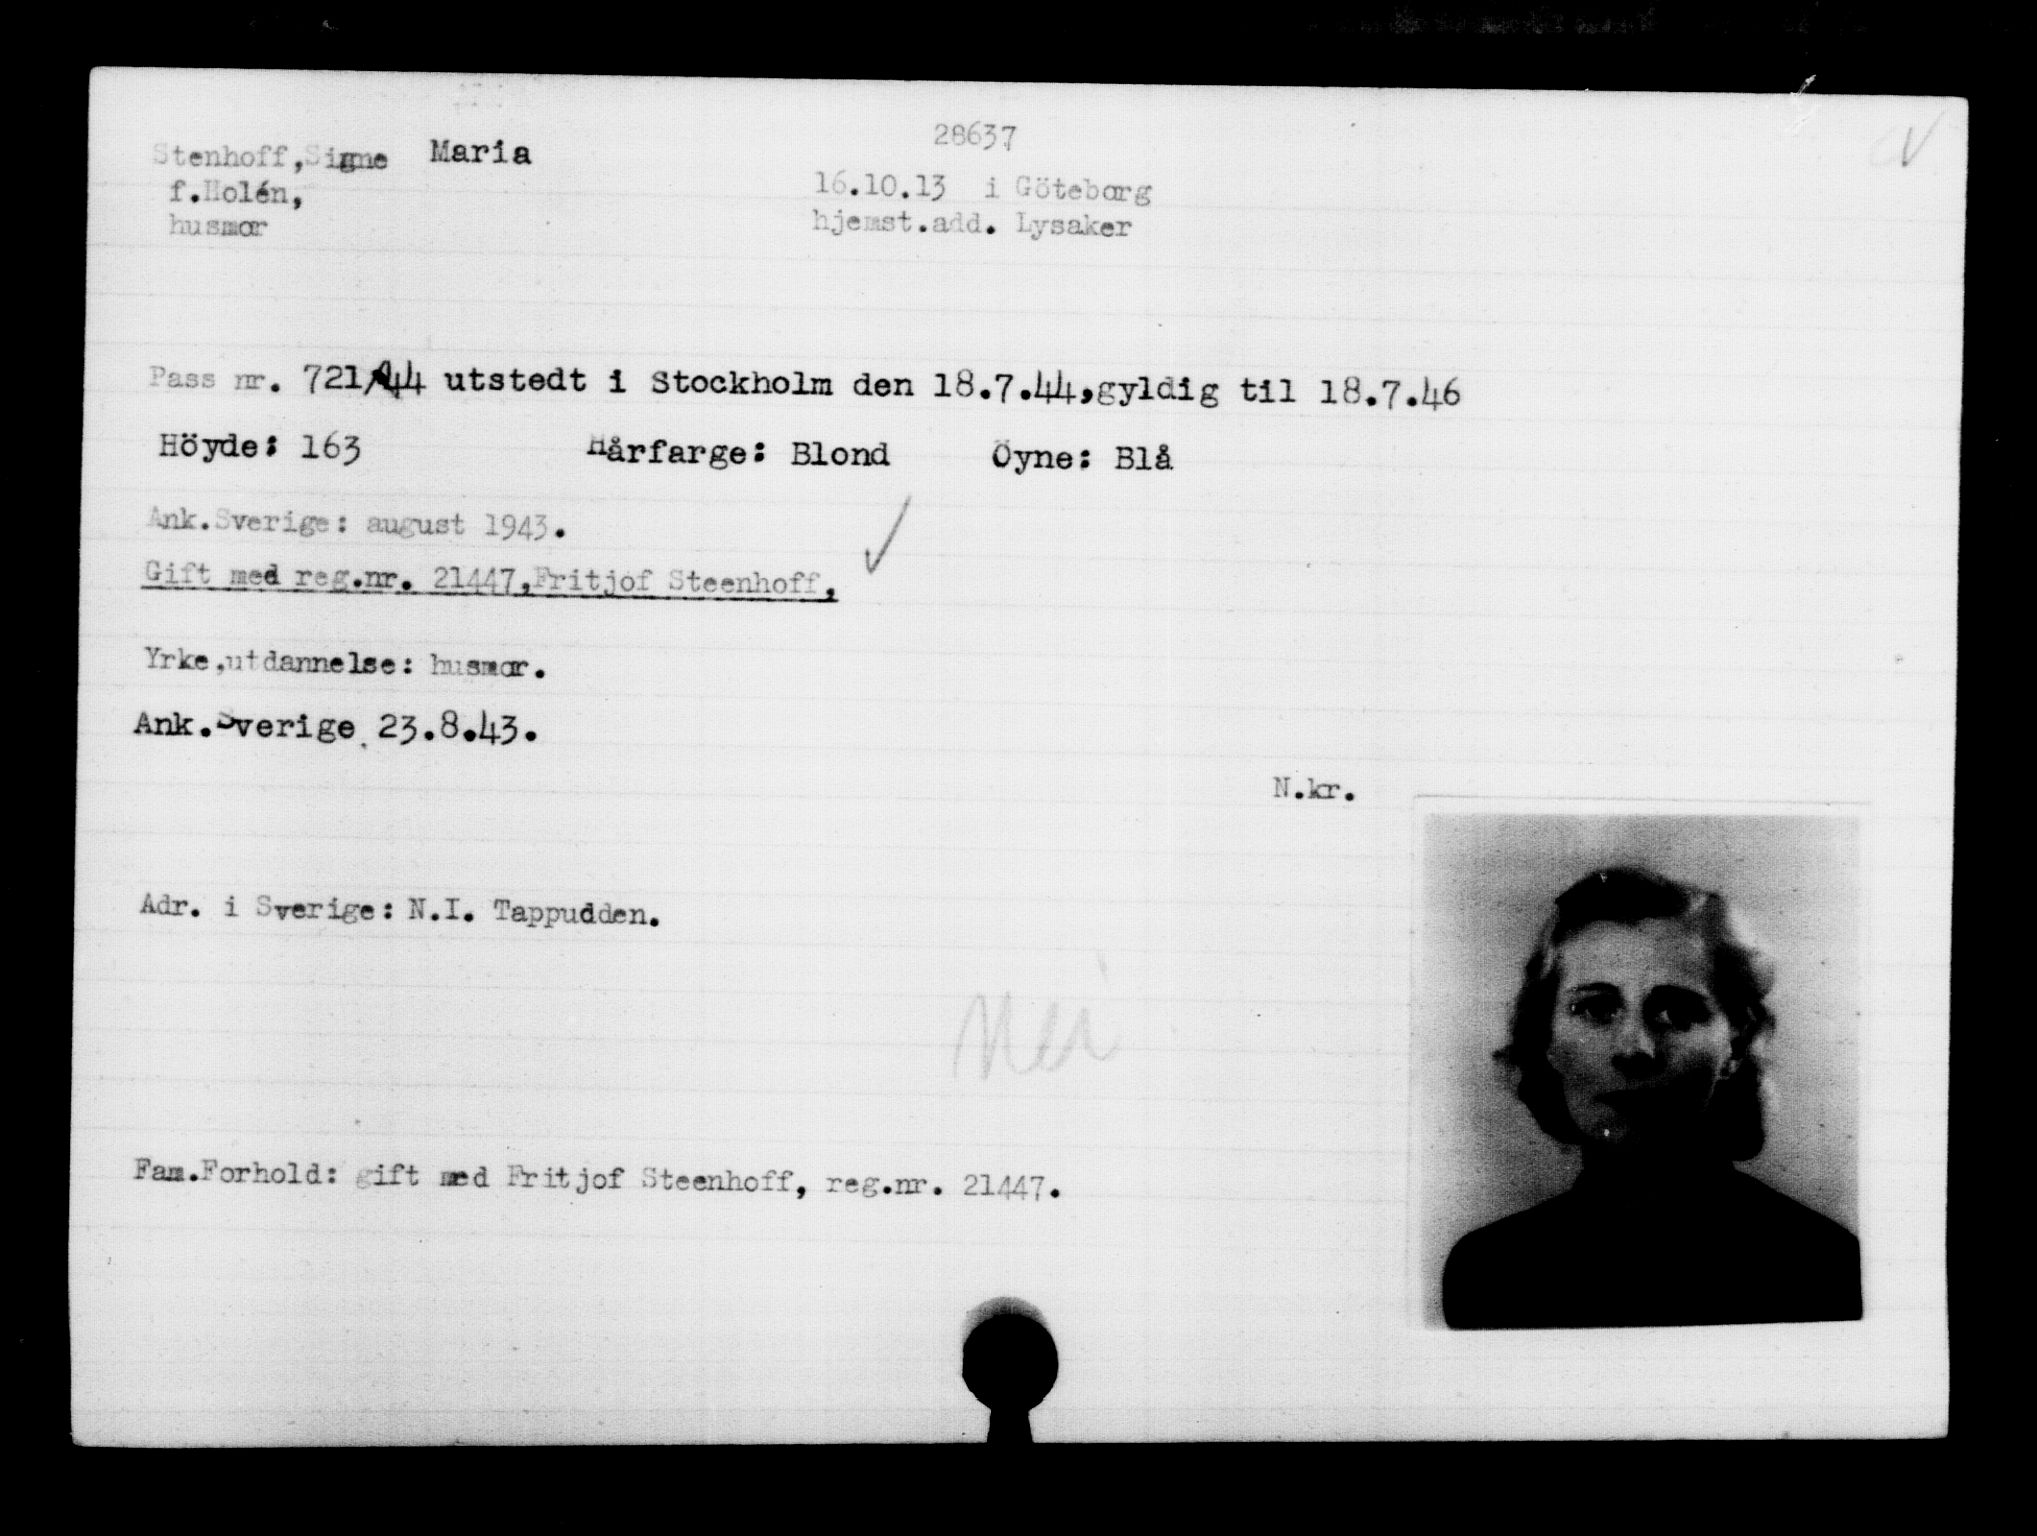 28637
Stenhoff, Signe Maria
f.Holén,
husmor
16.10.13 i Göteborg
hjemst.add. Lysaker
Pass nr. 721/44 utstedt i Stockholm den 18.7.44,gyldig til 18.7.46
Höyde: 163 Hårfarge: Blond Öyne: Blå
Ank.Sverige: august 1943.
Gift med reg.nr. 21447,Fritjof Steenhoff,
Yrke,utdannelse: husmor.
Ank.Sverige 23.8.43.
N.kr.
Adr. i Sverige: N.I. Tappudden.
Nei
Fam.Forhold: gift med Fritjof Steenhoff, reg.nr. 21447.